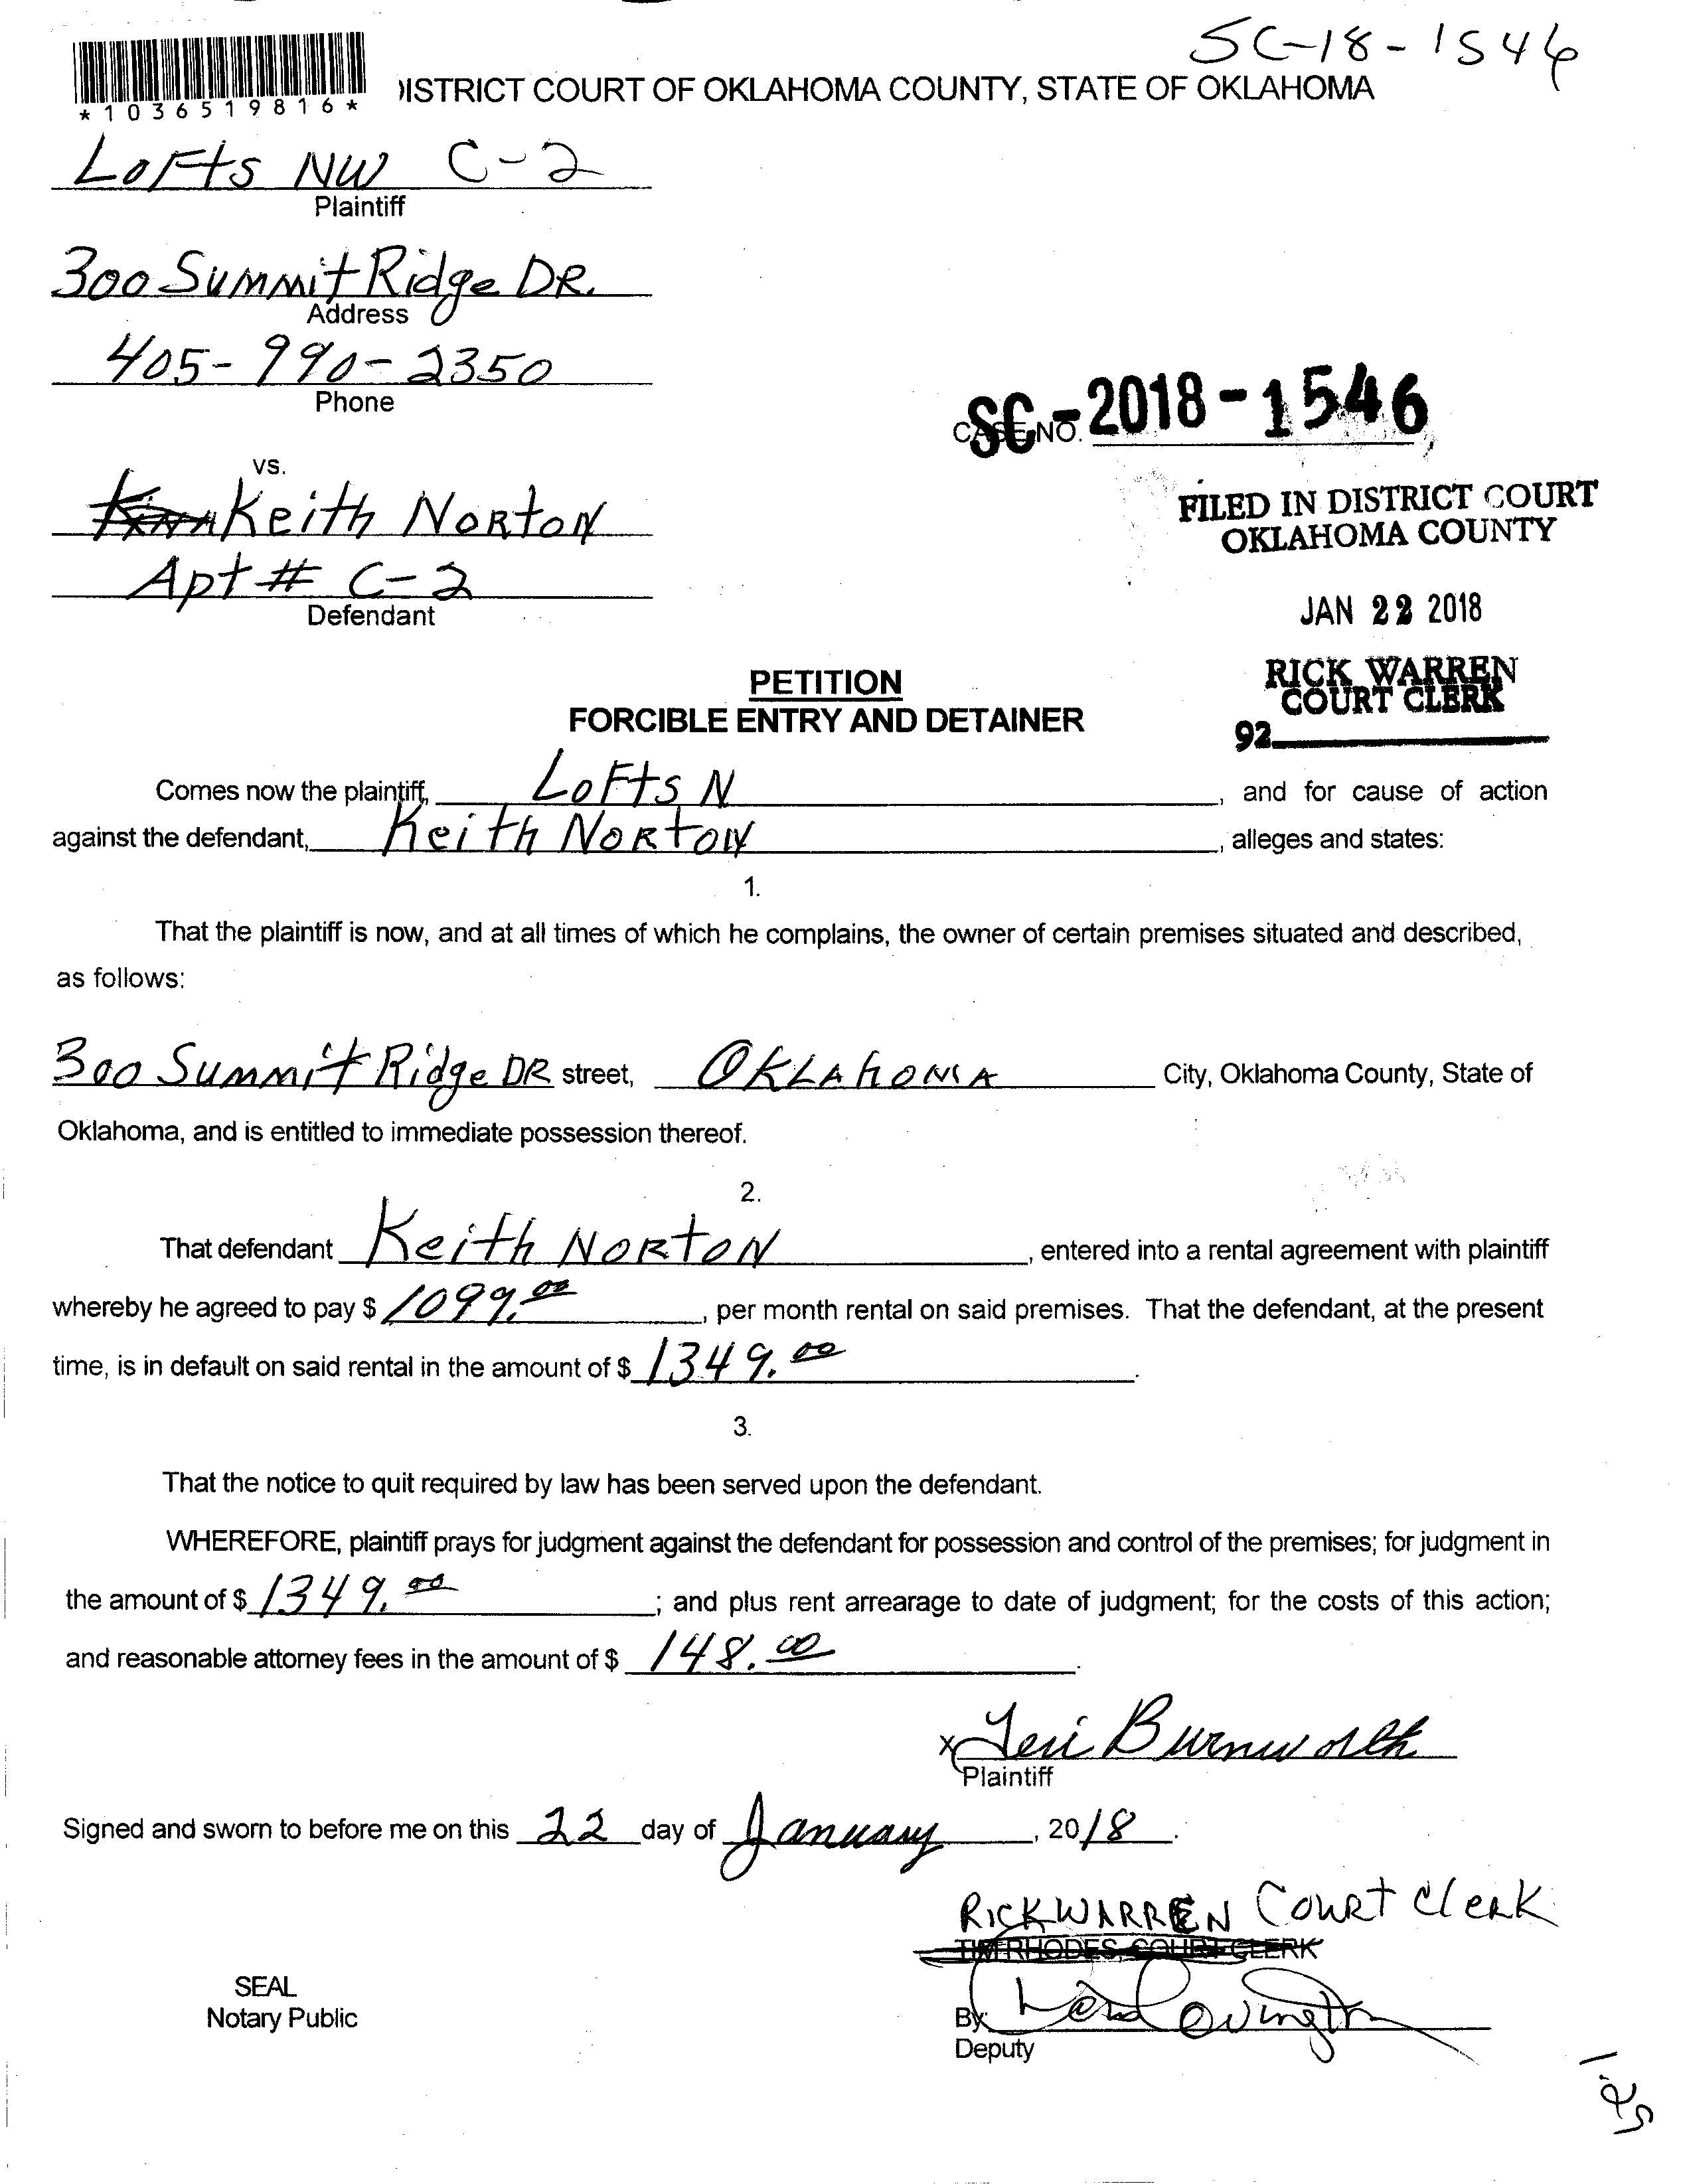 SC-18-1546
*1036519816*
DISTRICT COURT OF OKLAHOMA COUNTY, STATE OF OKLAHOMA
Lofts NW C-2
Plaintiff
300 Summit Ridge DR.
Address
405-990-2350
Phone
CASE NO. SC-2018-1546
vs.
Keith Norton
Apt # C-2
Defendant
FILED IN DISTRICT COURT
OKLAHOMA COUNTY
JAN 22 2018
RICK WARREN
COURT CLERK
92
PETITION
FORCIBLE ENTRY AND DETAINER
Comes now the plaintiff, Lofts N, and for cause of action
against the defendant, Keith Norton, alleges and states:
1.
That the plaintiff is now, and at all times of which he complains, the owner of certain premises situated and described,
as follows:
300 Summit Ridge DR street, Oklahoma City, Oklahoma County, State of
Oklahoma, and is entitled to immediate possession thereof.
2.
That defendant Keith Norton, entered into a rental agreement with plaintiff
whereby he agreed to pay $ 1099.00, per month rental on said premises. That the defendant, at the present
time, is in default on said rental in the amount of $ 1349.00.
3.
That the notice to quit required by law has been served upon the defendant.
WHEREFORE, plaintiff prays for judgment against the defendant for possession and control of the premises; for judgment in
the amount of $ 1349.00; and plus rent arrearage to date of judgment; for the costs of this action;
and reasonable attorney fees in the amount of $ 148.00.
x Teri Burnworth
Plaintiff
Signed and sworn to before me on this 22 day of January, 2018.
Rick Warren Court Clerk
TIM RHODES, COURT CLERK
SEAL
Notary Public
By:
Deputy
1.25